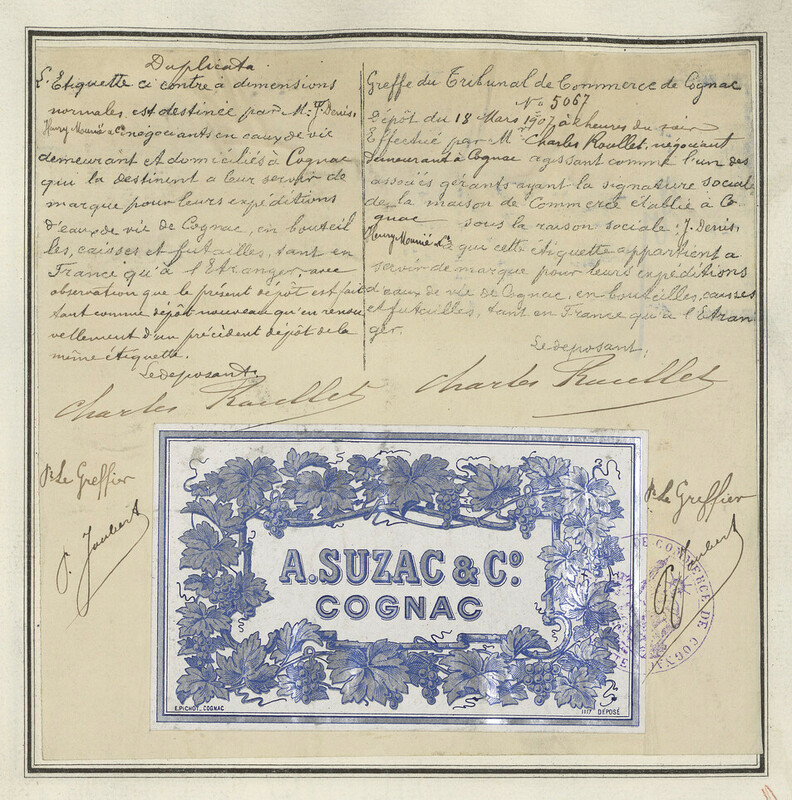 Duplicata
L'Etiquette ci contre à dimensions
normales est destinée par M. J. Denis,
Henry Mounié & Co négociants en eaux de vie
demeurant et domiciliés à Cognac
qui la destinent a leur servir de
marque pour leurs expéditions
d'eaux de vie de Cognac, en bouteil
les, caisses et futailles, tant en
France qu'à l'Etranger, avec
observation que le présent dépôt est fait
tant comme dépôt nouveau qu'en renou
vellement d'un précédent dépôt de la
même étiquette.
Le deposant,
Charles Roullet
Greffe du Tribunal de Commerce de Cognac
No 5067
Dépôt du 18 Mars 1907, à heures du soir
Effectué par Mr. Charles Roullet, négociant
demeurant à Cognac agissant comme l'un des
associés gérants ayant la signature sociale
de la maison de Commerce établie à Co
gnac sous la raison sociale: J. Denis,
Henry Mounié & Co à que cette étiquette appartient a
servir de marque pour leurs expéditions
d'eaux de vie de Cognac, en bouteilles, caisses
et futailles, tant en France qu'à l'Etran
ger.
Le deposant,
Charles Roullet
Pr Le Greffier
P. Joubert
Pr Le Greffier
Joubert
A. SUZAC & Co.
COGNAC
E. PICHOT, COGNAC
1117 DÉPOSÉ
DE COMMERCE DE COGNAC